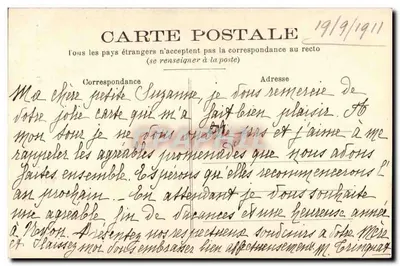 CARTE POSTALE
19/9/1911
Tous les pays étrangers n'acceptent pas la correspondance au recto
(se renseigner à la poste)
Correspondance
Adresse
Ma chère petite Suzanne, je vous remercie de
votre jolie carte qui m'a fait bien plaisir. A
mon tour je ne vous oublie pas et j'aime à me
rappeler les agréables promenades que nous avons
faites ensemble. Espérons qu'elles recommenceront l'
an prochain. — En attendant je vous souhaite
une agréable fin de vacances et une heureuse année
à Présentez nos respectueux souvenirs à votre Mère
et laissez moi vous embrasser bien affectueusement M.